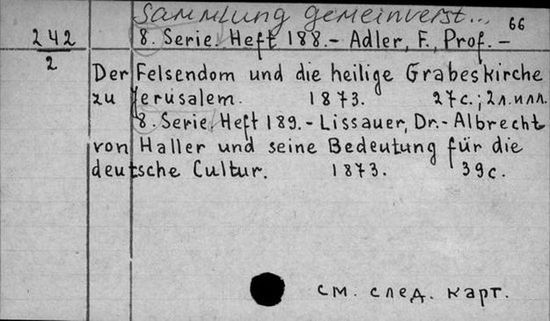 Sammlung gemeinverst...
66
242
2
8. Serie. Heft 188.- Adler, F., Prof. -
Der Felsendom und die heilige Grabeskirche
zu Jerusalem. 1873. 27с.; 2л.илл.
8. Serie. Heft 189.- Lissauer, Dr.- Albrecht
von Haller und seine Bedeutung für die
deutsche Cultur. 1873. 39с.
см. след. карт.